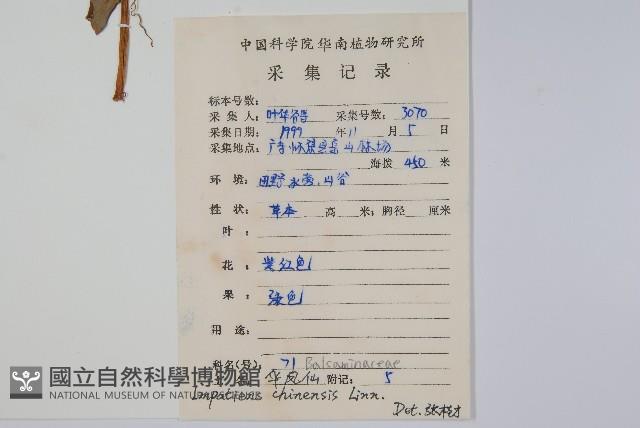 中国科学院华南植物研究所
采集记录
标本号数:
采集人: 叶华谷 采集号数: 3070
采集日期: 1999 年 11 月 5 日
采集地点: 林场
海拨 450 米
环境: 田野水旁、山谷
性状: 草本 高 米; 胸径 厘米
叶:
花: 紫红色
果: 绿色
用途:
科名(号): 71 Balsaminaceae
华凤仙 附记: 5
Impatiens chinensis Linn.
Det.
國立自然科學博物館
NATIONAL MUSEUM OF NATURAL